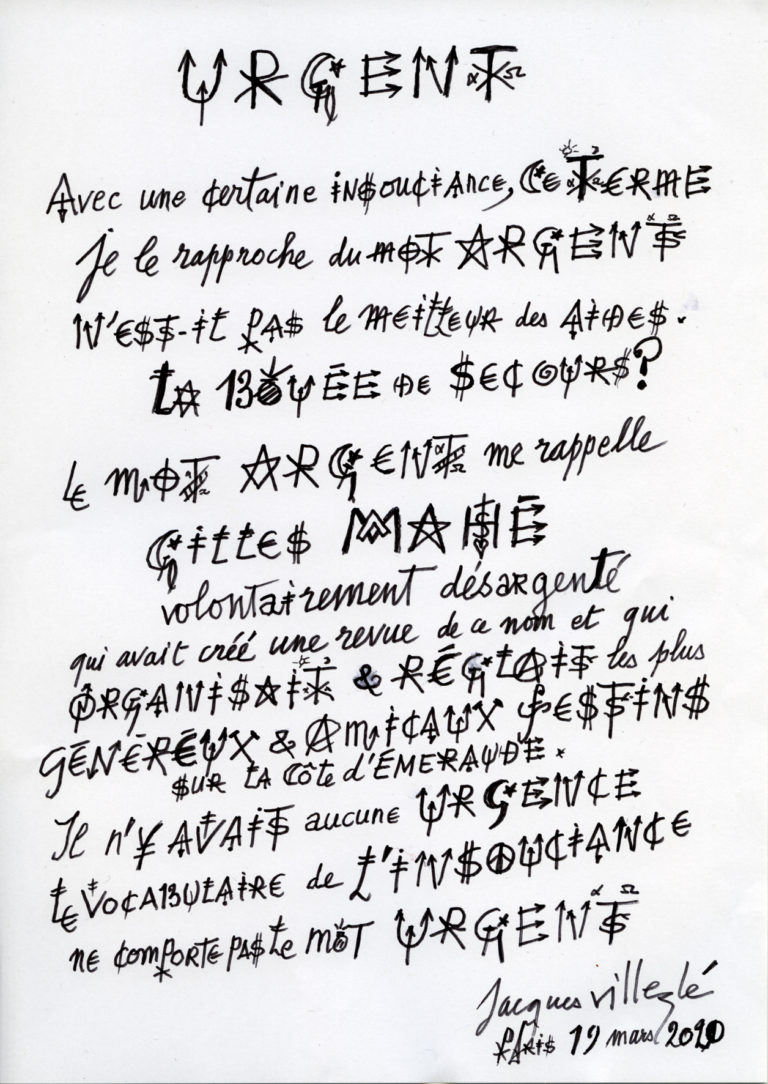 URGENT
Avec une certaine INSOUCIANCE, CE TERME
je le rapproche du MOT ARGENT
N'EST-IL PAS le MEILLEUR des AIDES.
LA BOUÉE DE SECOURS?
LE MOT ARGENT me rappelle
GILLES MAHÉ
volontairement désargenté
qui avait créé une revue de ce nom et qui
ORGANISAIT & RÉGLAIT les plus
GÉNÉREUX & AMICAUX FESTINS
SUR LA CÔTE d'ÉMERAUDE.
Il n'Y AVAIT aucune URGENCE
LE VOCABULAIRE de L'INSOUCIANCE
NE COMPORTE PAS LE MOT URGENT
Jacques Villeglé
PARIS 19 mars 2020